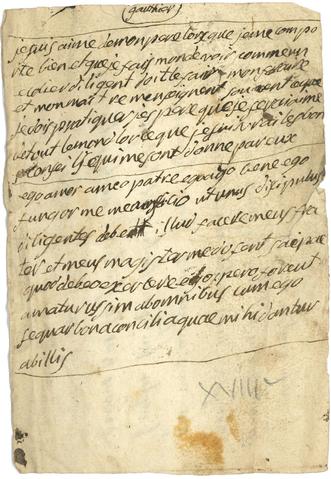 (gauthier)
je suis aimé de mon pere lorsque je me compo
rte bien et que je fais mon devoir comme un
ecolier diligent doit le faire mon frere
et mon maitre m'enseignent souvent ce que
je dois pratiquer j'espere que je serai aimé
de tout le monde lorsque je suivrai les bon
conseils qui me sont donné par eux
ego amor a meo patre quando bene ego
fungor me meo officio ut unus discipulus
diligentes debent illud facere meus fra
ter et meus magister me docent saepe
quod debeo exercere ego spero fore ut
amaturus sim ab omnibus cum ego
sequar bona concilia quae mihi dantur
ab illis
XVIII